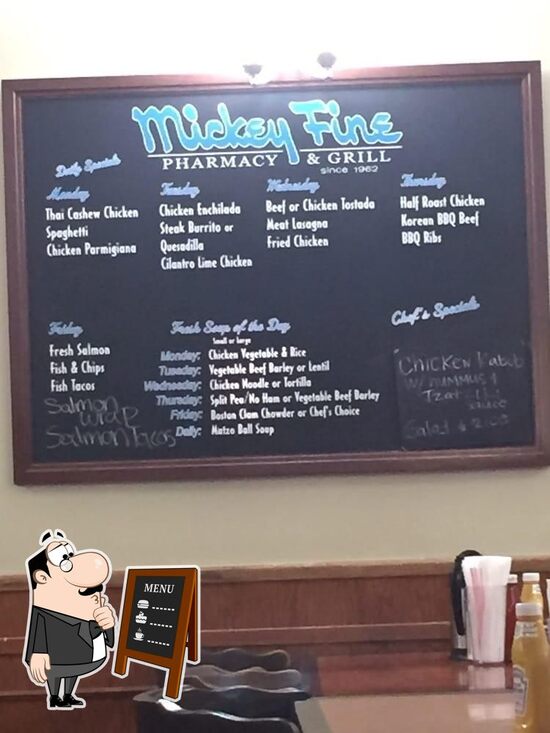 Mickey Fine
PHARMACY & GRILL
since 1962
Daily Specials
Monday
Thai Cashew Chicken
Spaghetti
Chicken Parmigiana
Tuesday
Chicken Enchilada
Steak Burrito or
Quesadilla
Cilantro Lime Chicken
Wednesday
Beef or Chicken Tostada
Meat Lasagna
Fried Chicken
Thursday
Half Roast Chicken
Korean BBQ Beef
BBQ Ribs
Friday
Fresh Salmon
Fish & Chips
Fish Tacos
Salmon
wrap
Salmon Tacos
Fresh Soup of the Day
Small or Large
Monday: Chicken Vegetable & Rice
Tuesday: Vegetable Beef Barley or Lentil
Wednesday: Chicken Noodle or Tortilla
Thursday: Split Pea/No Ham or Vegetable Beef Barley
Friday: Boston Clam Chowder or Chef's Choice
Daily: Matzo Ball Soup
Chef's Specials
Chicken Kabob
w/ Hummus &
Salad
MENU